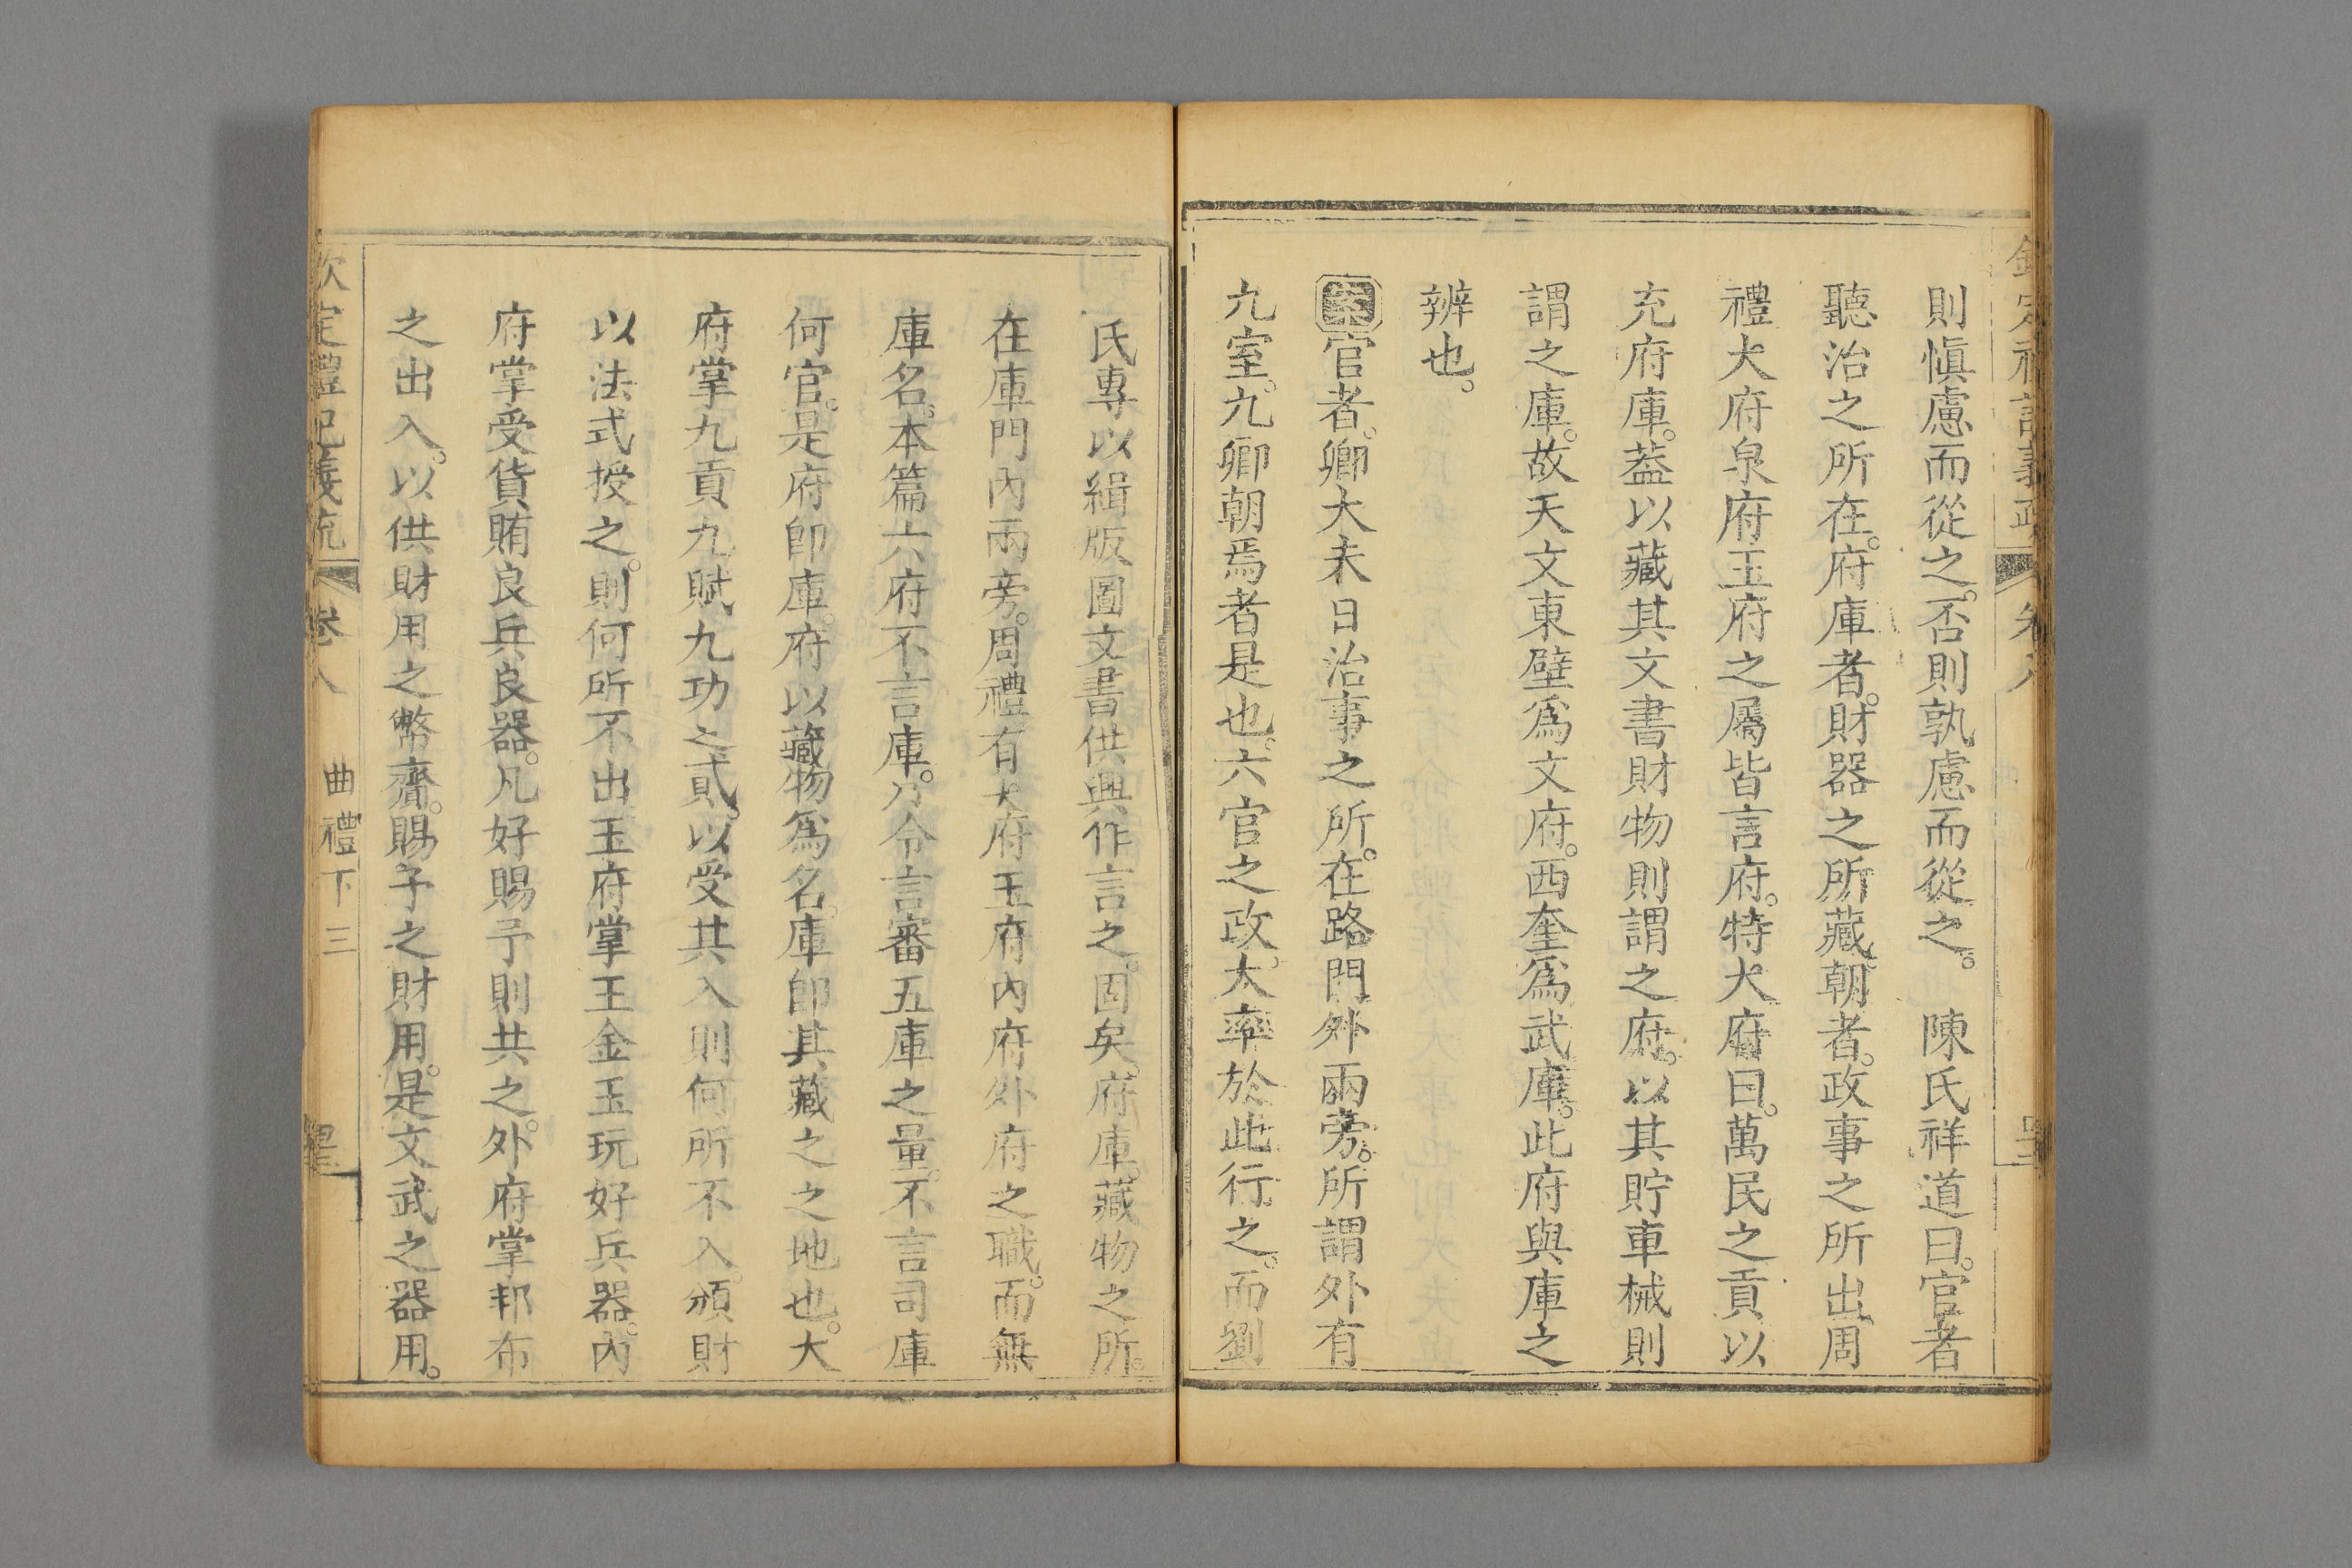 則慎慮而從之。否則孰慮而從之。　陳氏祥道曰。官者
聽治之所在。府庫者。財器之所藏。朝者。政事之所出。周
禮大府泉府玉府之屬皆言府。特大府曰。萬民之貢以
充府庫。葢以藏其文書財物則謂之府。以其貯車械則
謂之庫。故天文東壁爲文府。西奎爲武庫。此府與庫之
辨也。
案官者。卿大夫日治事之所。在路門外兩旁。所謂外有
九室。九卿朝焉者是也。六官之政。大率於此行之。而劉
氏專以緝版圖文書供興作言之。固矣。府庫。藏物之所。
在庫門內兩旁。周禮有大府玉府內府外府之職。而無
庫名。本篇六府不言庫。乃令言審五庫之量。不言司庫
何官。是府卽庫。府以藏物爲名。庫卽其藏之之地也。大
府掌九貢九賦九功之貳。以受其入則何所不入。頒財
以法式授之。則何所不出玉府掌王金玉玩好兵器。內
府掌受貨賄良兵良器。凡好賜予則共之。外府掌邦布
之出入。以供財用之幣齎。賜予之財用。是文武之器用。
欽定禮記義疏　卷八　曲禮下三